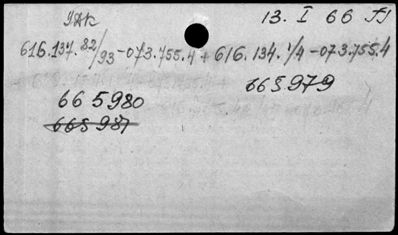 ЗАК 13. I 66 ЛЛ
616.137.82/93-073.755.4 + 616.134.1/4-073.755.4
665979
665980
665981